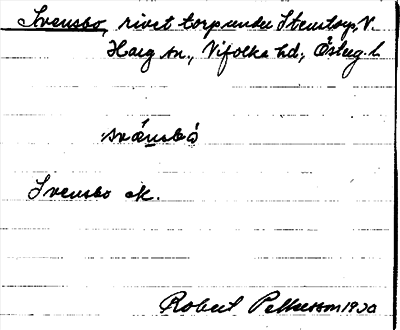 Svensbo, rivet torp under Stenstorp, V.
Harg sn., Vifolka hd., Österg. l.
svänsbo
Svensbo ek.
Robert Pettersson 1920